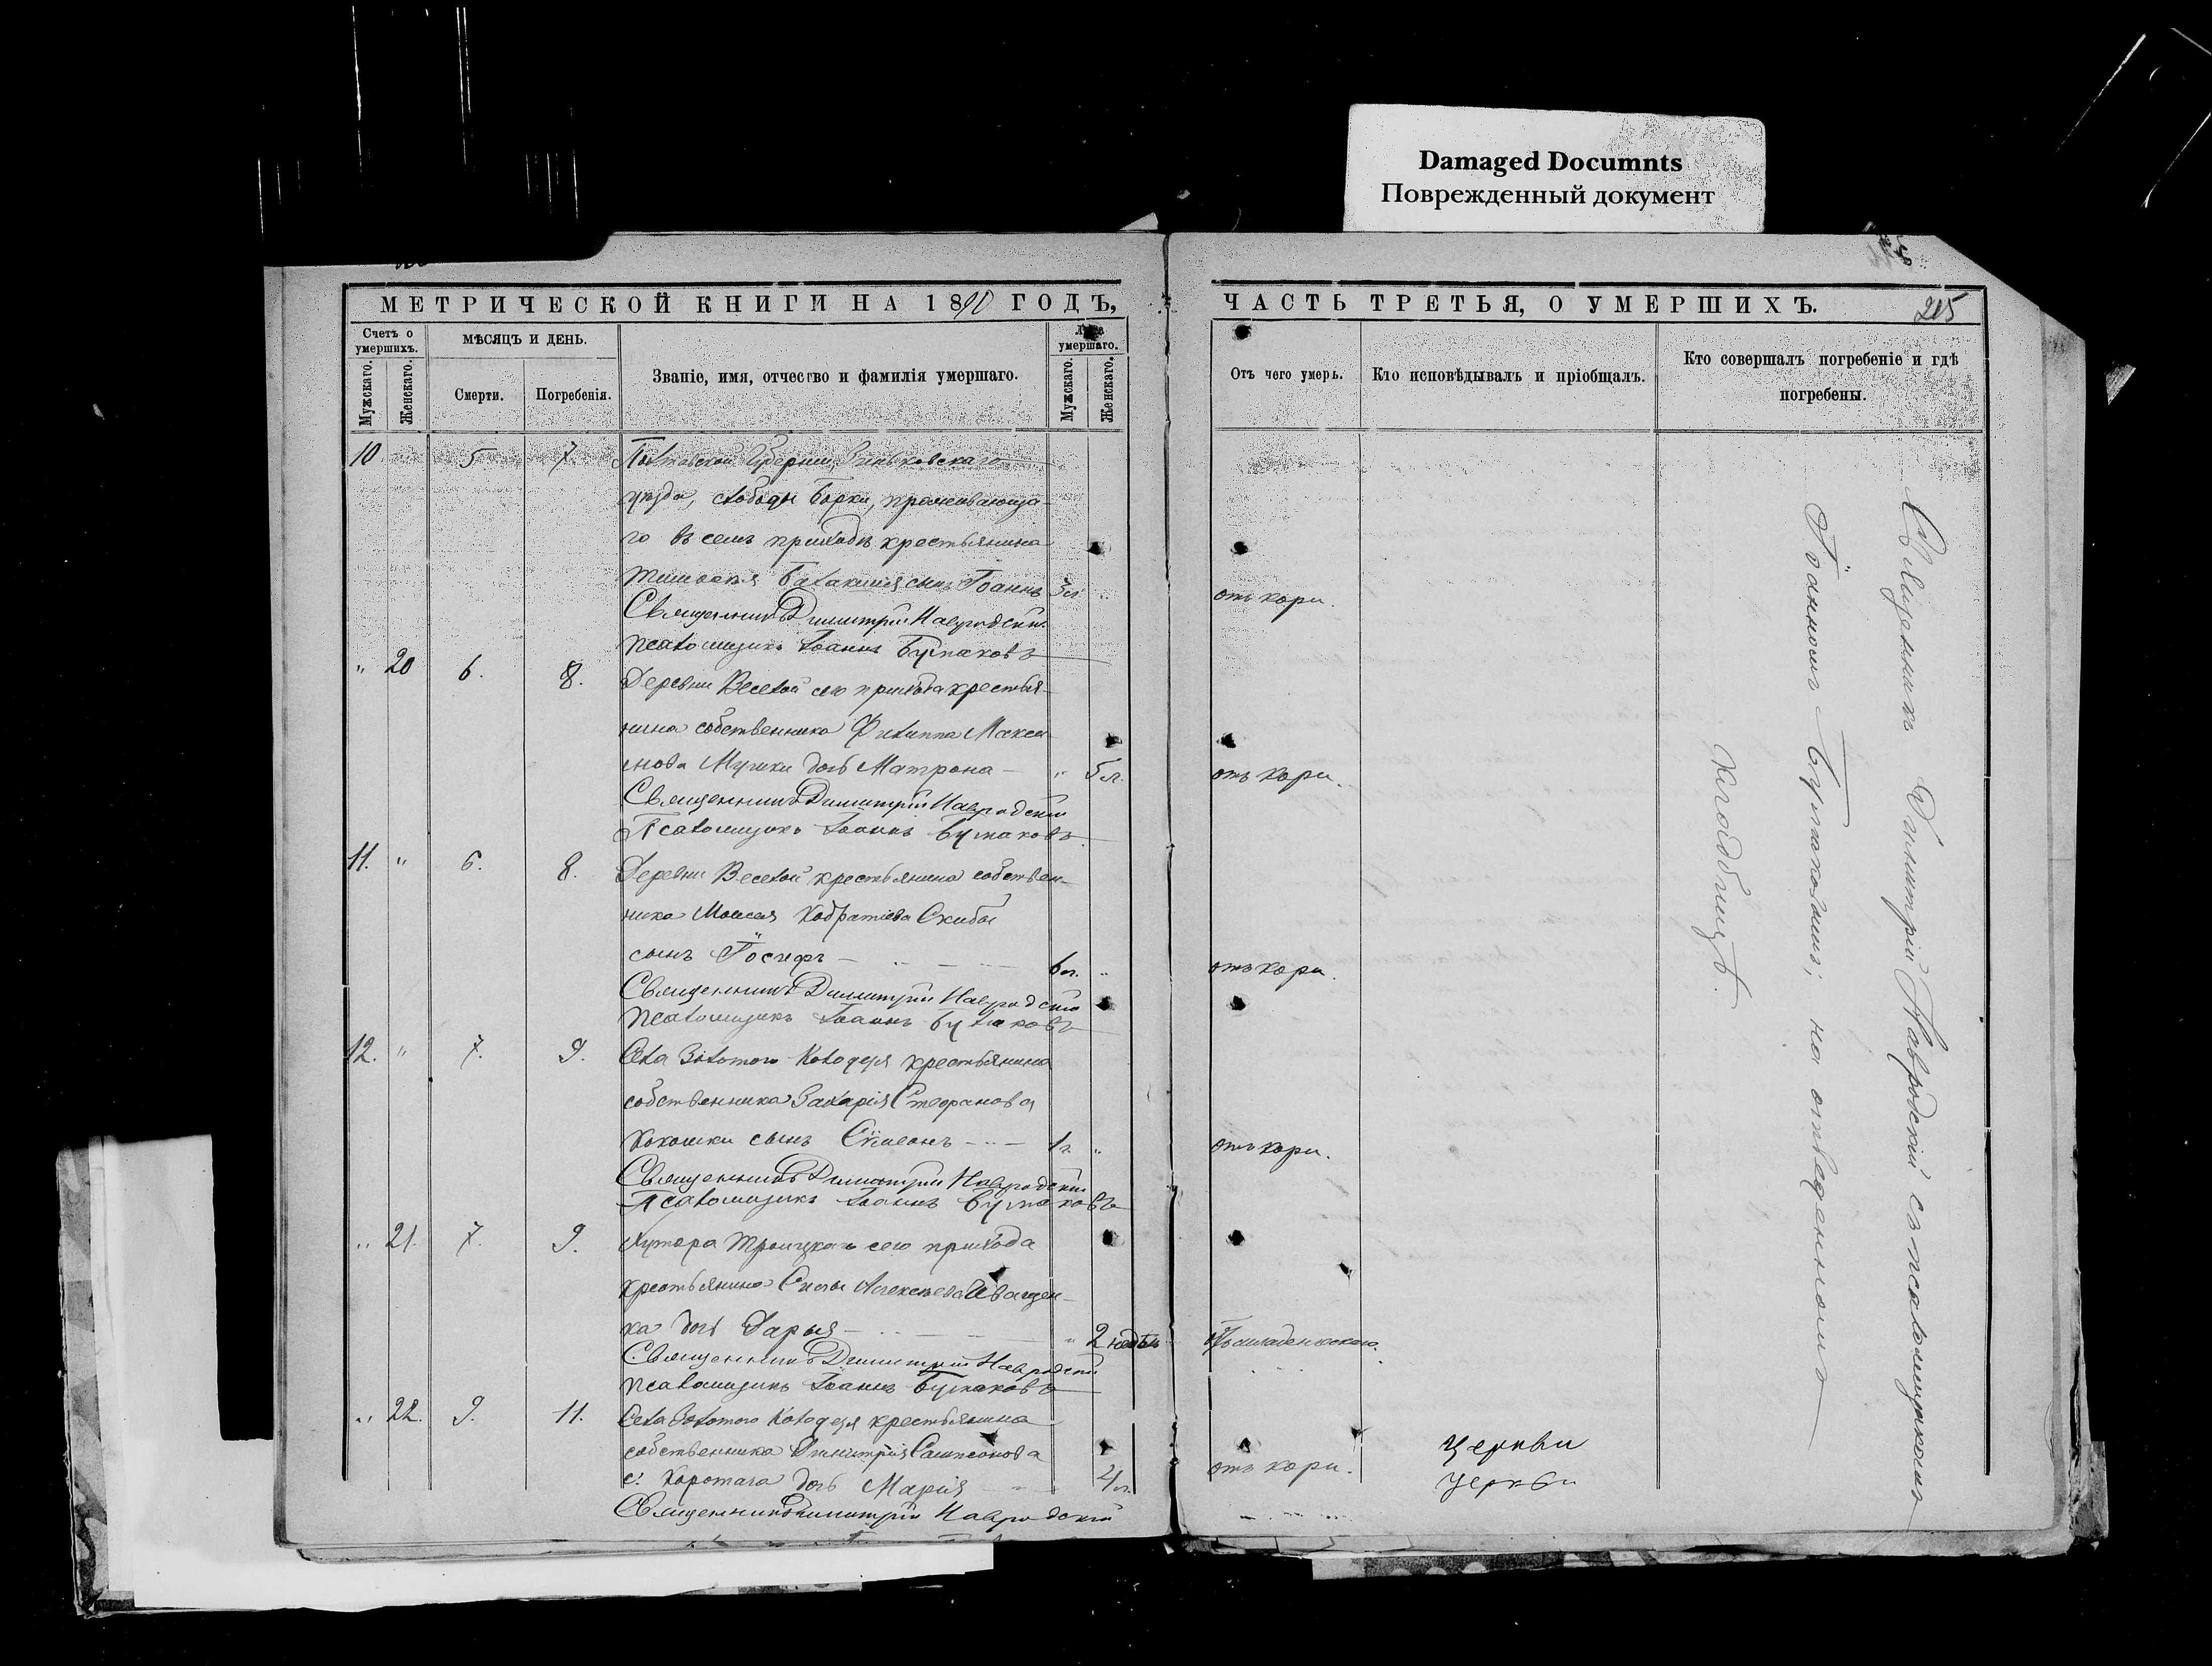 Damaged Documnts
Поврежденный документ
МЕТРИЧЕСКОЙ КНИГИ НА 1890 ГОДЪ,
Счетъ о умершихъ.
МѢСЯЦЪ И ДЕНЬ.
Званіе, имя, отчество и фамилія умершаго.
Лѣта умершаго.
Мужскаго.
Женскаго.
Смерти.
Погребенія.
Мужскаго.
Женскаго.
10 5 7 Полтавской Губерніи, Зиньковскаго
уѣзда, слободы Борки, проживающа-
го въ семъ приходѣ крестьянина
сынъ Іоаннъ 3 л.
Священникъ Димитрій Навродскій
Псаломщикъ Іоаннъ Булгаковъ
" 20 6. 8. Деревни Веселой сего прихода крестья-
нина собственника Филиппа Макси-
мова дочь Матрона " 5 л.
Священникъ Димитрій Навродскій
Псаломщикъ Іоаннъ Булгаковъ
11. " 6. 8. Деревни Веселой крестьянина собствен-
ника Моисея Скибы
сынъ Іосифъ 6 л. "
Священникъ Димитрій Навродскій
Псаломщикъ Іоаннъ Булгаковъ
12. " 7. 9. Села Золотого Колодезя крестьянина
собственника Захарія Стефанова
Кокошки сынъ Сѷмеонъ 1 г. "
Священникъ Димитрій Навродскій
Псаломщикъ Іоаннъ Булгаковъ
" 21. 7. 9. Хутора Троицкаго сего прихода
крестьянина Алексѣева Иващен-
ка дочь Дарья " 2 недѣли
Священникъ Димитрій Навродскій
Псаломщикъ Іоаннъ Булгаковъ
" 22. 9. 11. Села Золотого Колодезя крестьянина
собственника Димитрія Сампсонова
дочь Марія 4 л.
Священникъ Димитрій Навродскій
ЧАСТЬ ТРЕТЬЯ, О УМЕРШИХЪ.
215
Отъ чего умеръ.
Кто исповѣдывалъ и пріобщалъ.
Кто совершалъ погребеніе и гдѣ погребены.
отъ кори.
отъ кори.
отъ кори.
отъ кори.
отъ младенческаго.
отъ кори.
Церкви
Церкви
Священникъ Димитрій Навродскій съ псаломщикомъ
Іоанномъ Булгаковымъ; на отведенномъ
кладбищѣ.